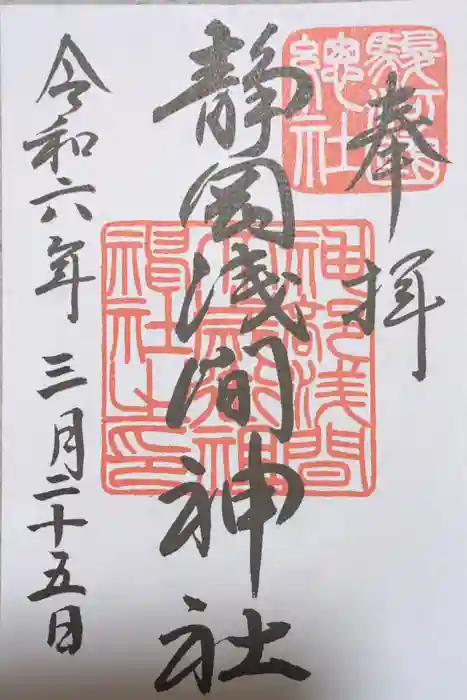 奉拝
駿河國
總社
静岡浅間神社
神部浅間
大歳御祖神
社之印
令和六年三月二十五日